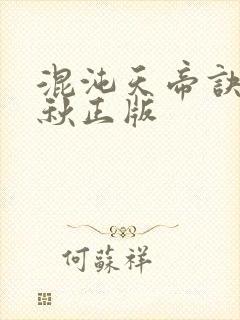 混沌天帝訣
秋正版
何蘇祥